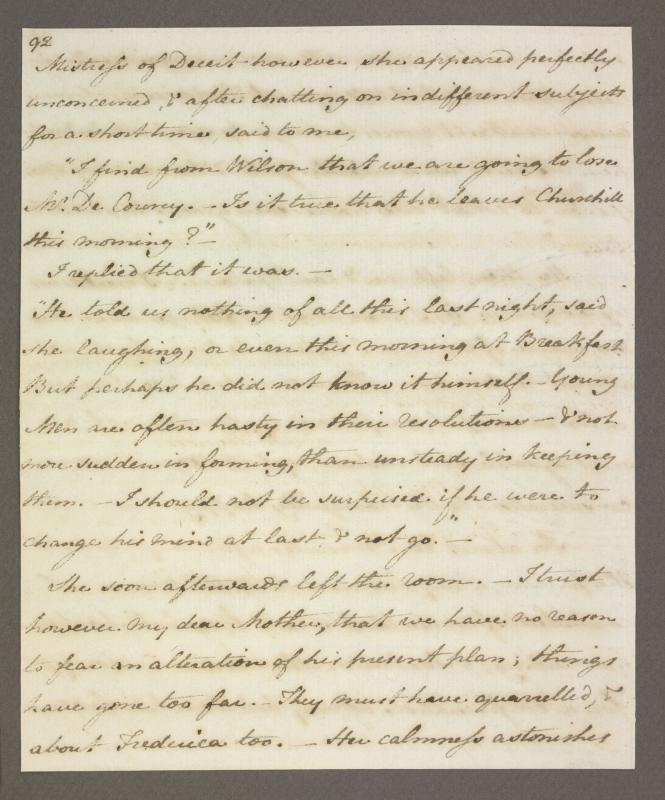 92
Mistress of Deceit however she appeared perfectly
unconcerned, & after chatting on indifferent subjects
for a short time, said to me,
"I find from Wilson that we are going to lose
Mr. De Courcy. - Is it true that he leaves Churchill
this morning?" -
I replied that it was. -
"He told us nothing of all this last night, said
she laughing, or even this morning at Breakfast.
But perhaps he did not know it himself. - Young
Men are often hasty in their resolutions - & not
more sudden in forming, than unsteady in keeping
them. - I should not be surprised if he were to
change his mind at last, & not go." -
She soon afterwards left the room. - I trust
however my dear Mother, that we have no reason
to fear an alteration of his present plan; things
have gone too far. - They must have quarrelled, &
about Frederica too. - Her calmness astonishes